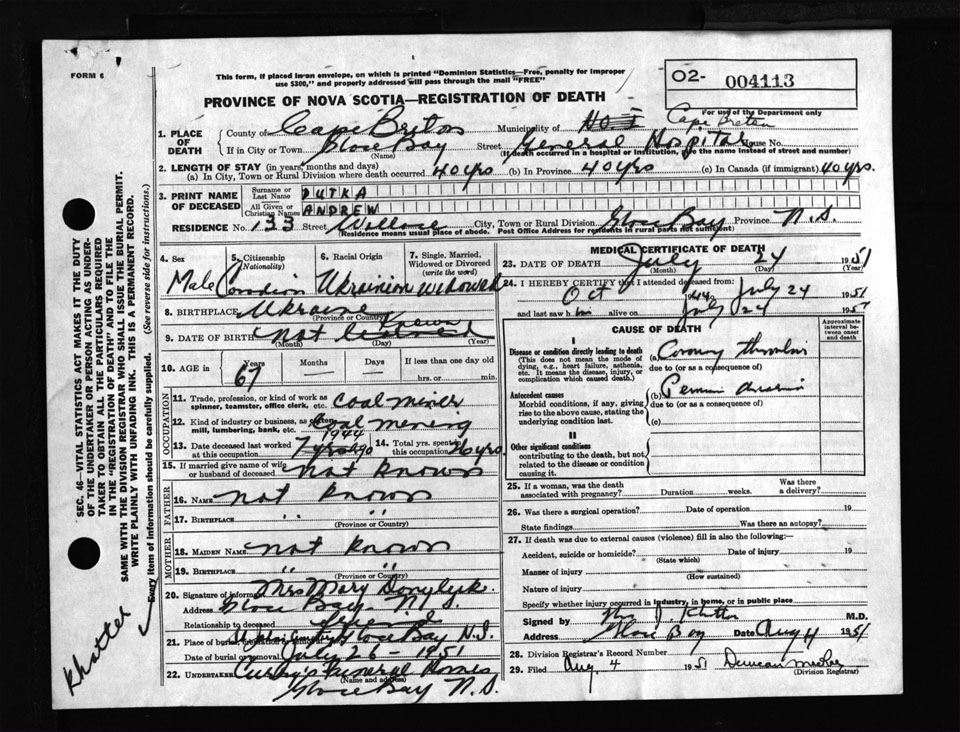 FORM 6
This form, if placed in an envelope, on which is printed "Dominion Statistics—Free, penalty for improper
use $300," and properly addressed will pass through the mail "FREE"
02- 004113
For use of the Department only
PROVINCE OF NOVA SCOTIA—REGISTRATION OF DEATH
1. PLACE OF DEATH
County of Cape Breton Municipality of No. 1 Cape Breton
If in City or Town Glace Bay Street General Hospital House No.
(Name) (If death occurred in a hospital or institution, give the name instead of street and number)
2. LENGTH OF STAY (in years, months and days)
(a) In City, Town or Rural Division where death occurred 40 yrs (b) In Province 40 yrs (c) In Canada (if immigrant) 40 yrs.
3. PRINT NAME OF DECEASED
Surname or Last Name DUTKA
All Given or Christian Names ANDREW
RESIDENCE No. 133 Street Wallace City, Town or Rural Division Glace Bay Province N.S.
(Residence means usual place of abode. Post Office Address for residents in rural parts not sufficient)
4. Sex Male
5. Citizenship (Nationality) Canadian
6. Racial Origin Ukrainian
7. Single, Married, Widowed or Divorced (write the word) widowed
8. BIRTHPLACE Ukraine
(Province or Country)
9. DATE OF BIRTH not known
(Month) (Day) (Year)
10. AGE in 67 Years Months Days If less than one day old
hrs. or min.
11. Trade, profession, or kind of work as spinner, teamster, office clerk, etc. coal miner
12. Kind of industry or business, as cotton mill, lumbering, bank, etc. Coal mining
13. Date deceased last worked at this occupation 1944 7 yrs ago
14. Total yrs. spent in this occupation 26 yrs
15. If married give name of wife or husband of deceased not known
FATHER
16. NAME not known
17. BIRTHPLACE " "
(Province or Country)
MOTHER
18. MAIDEN NAME not known
19. BIRTHPLACE " "
(Province or Country)
20. Signature of informant Mrs Mary
Address Glace Bay N.S.
Relationship to deceased friend
21. Place of burial, Glace Bay N.S.
Date of burial or removal July 26 - 1951
22. UNDERTAKER Curry's Funeral Homes
(Name and address)
Glace Bay N.S.
MEDICAL CERTIFICATE OF DEATH
23. DATE OF DEATH July 24 1951
(Month) (Day) (Year)
24. I HEREBY CERTIFY that I attended deceased from:
Oct 1944 July 24 1951
and last saw him alive on July 24 1951
CAUSE OF DEATH
Approximate interval between onset and death
I
Disease or condition directly leading to death
(This does not mean the mode of dying, e.g., heart failure, asthenia, etc. It means the disease, injury, or complication which caused death.
(a) Coronary thrombosis
due to (or as a consequence of)
Antecedent causes
Morbid conditions, if any, giving rise to the above cause, stating the underlying condition last.
(b)
due to (or as a consequence of)
(c)
II
Other significant conditions
contributing to the death, but not related to the disease or condition causing it.
25. If a woman, was the death associated with pregnancy? Duration weeks. Was there a delivery?
26. Was there a surgical operation? Date of operation 19
State findings Was there an autopsy?
27. If death was due to external causes (violence) fill in also the following:—
Accident, suicide or homicide? Date of injury 19
(State which)
Manner of injury
(How sustained)
Nature of injury
Specify whether injury occurred in industry, in home, or in public place
Signed by M.D.
Address Glace Bay Date Aug 4 1951
28. Division Registrar's Record Number
29. Filed Aug 4 1951 Duncan
(Division Registrar)
SEC. 46—VITAL STATISTICS ACT MAKES IT THE DUTY
OF THE UNDERTAKER OR PERSON ACTING AS UNDERTAKER
TO OBTAIN ALL THE PARTICULARS REQUIRED
IN THE "REGISTRATION OF DEATH" AND TO FILE THE
SAME WITH THE DIVISION REGISTRAR WHO SHALL ISSUE THE BURIAL PERMIT.
WRITE PLAINLY WITH UNFADING INK. THIS IS A PERMANENT RECORD.
Every item of information should be carefully supplied. (See reverse side for instructions.)
Khattel